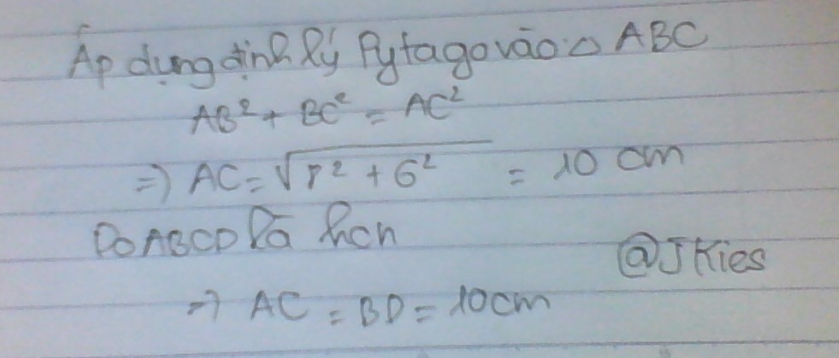 Áp dụng định lý Pytago vào △ ABC
AB² + BC² = AC²
=> AC = √8² + 6² = 10 cm
Do ABCD là hcn
@JKies
=> AC = BD = 10cm